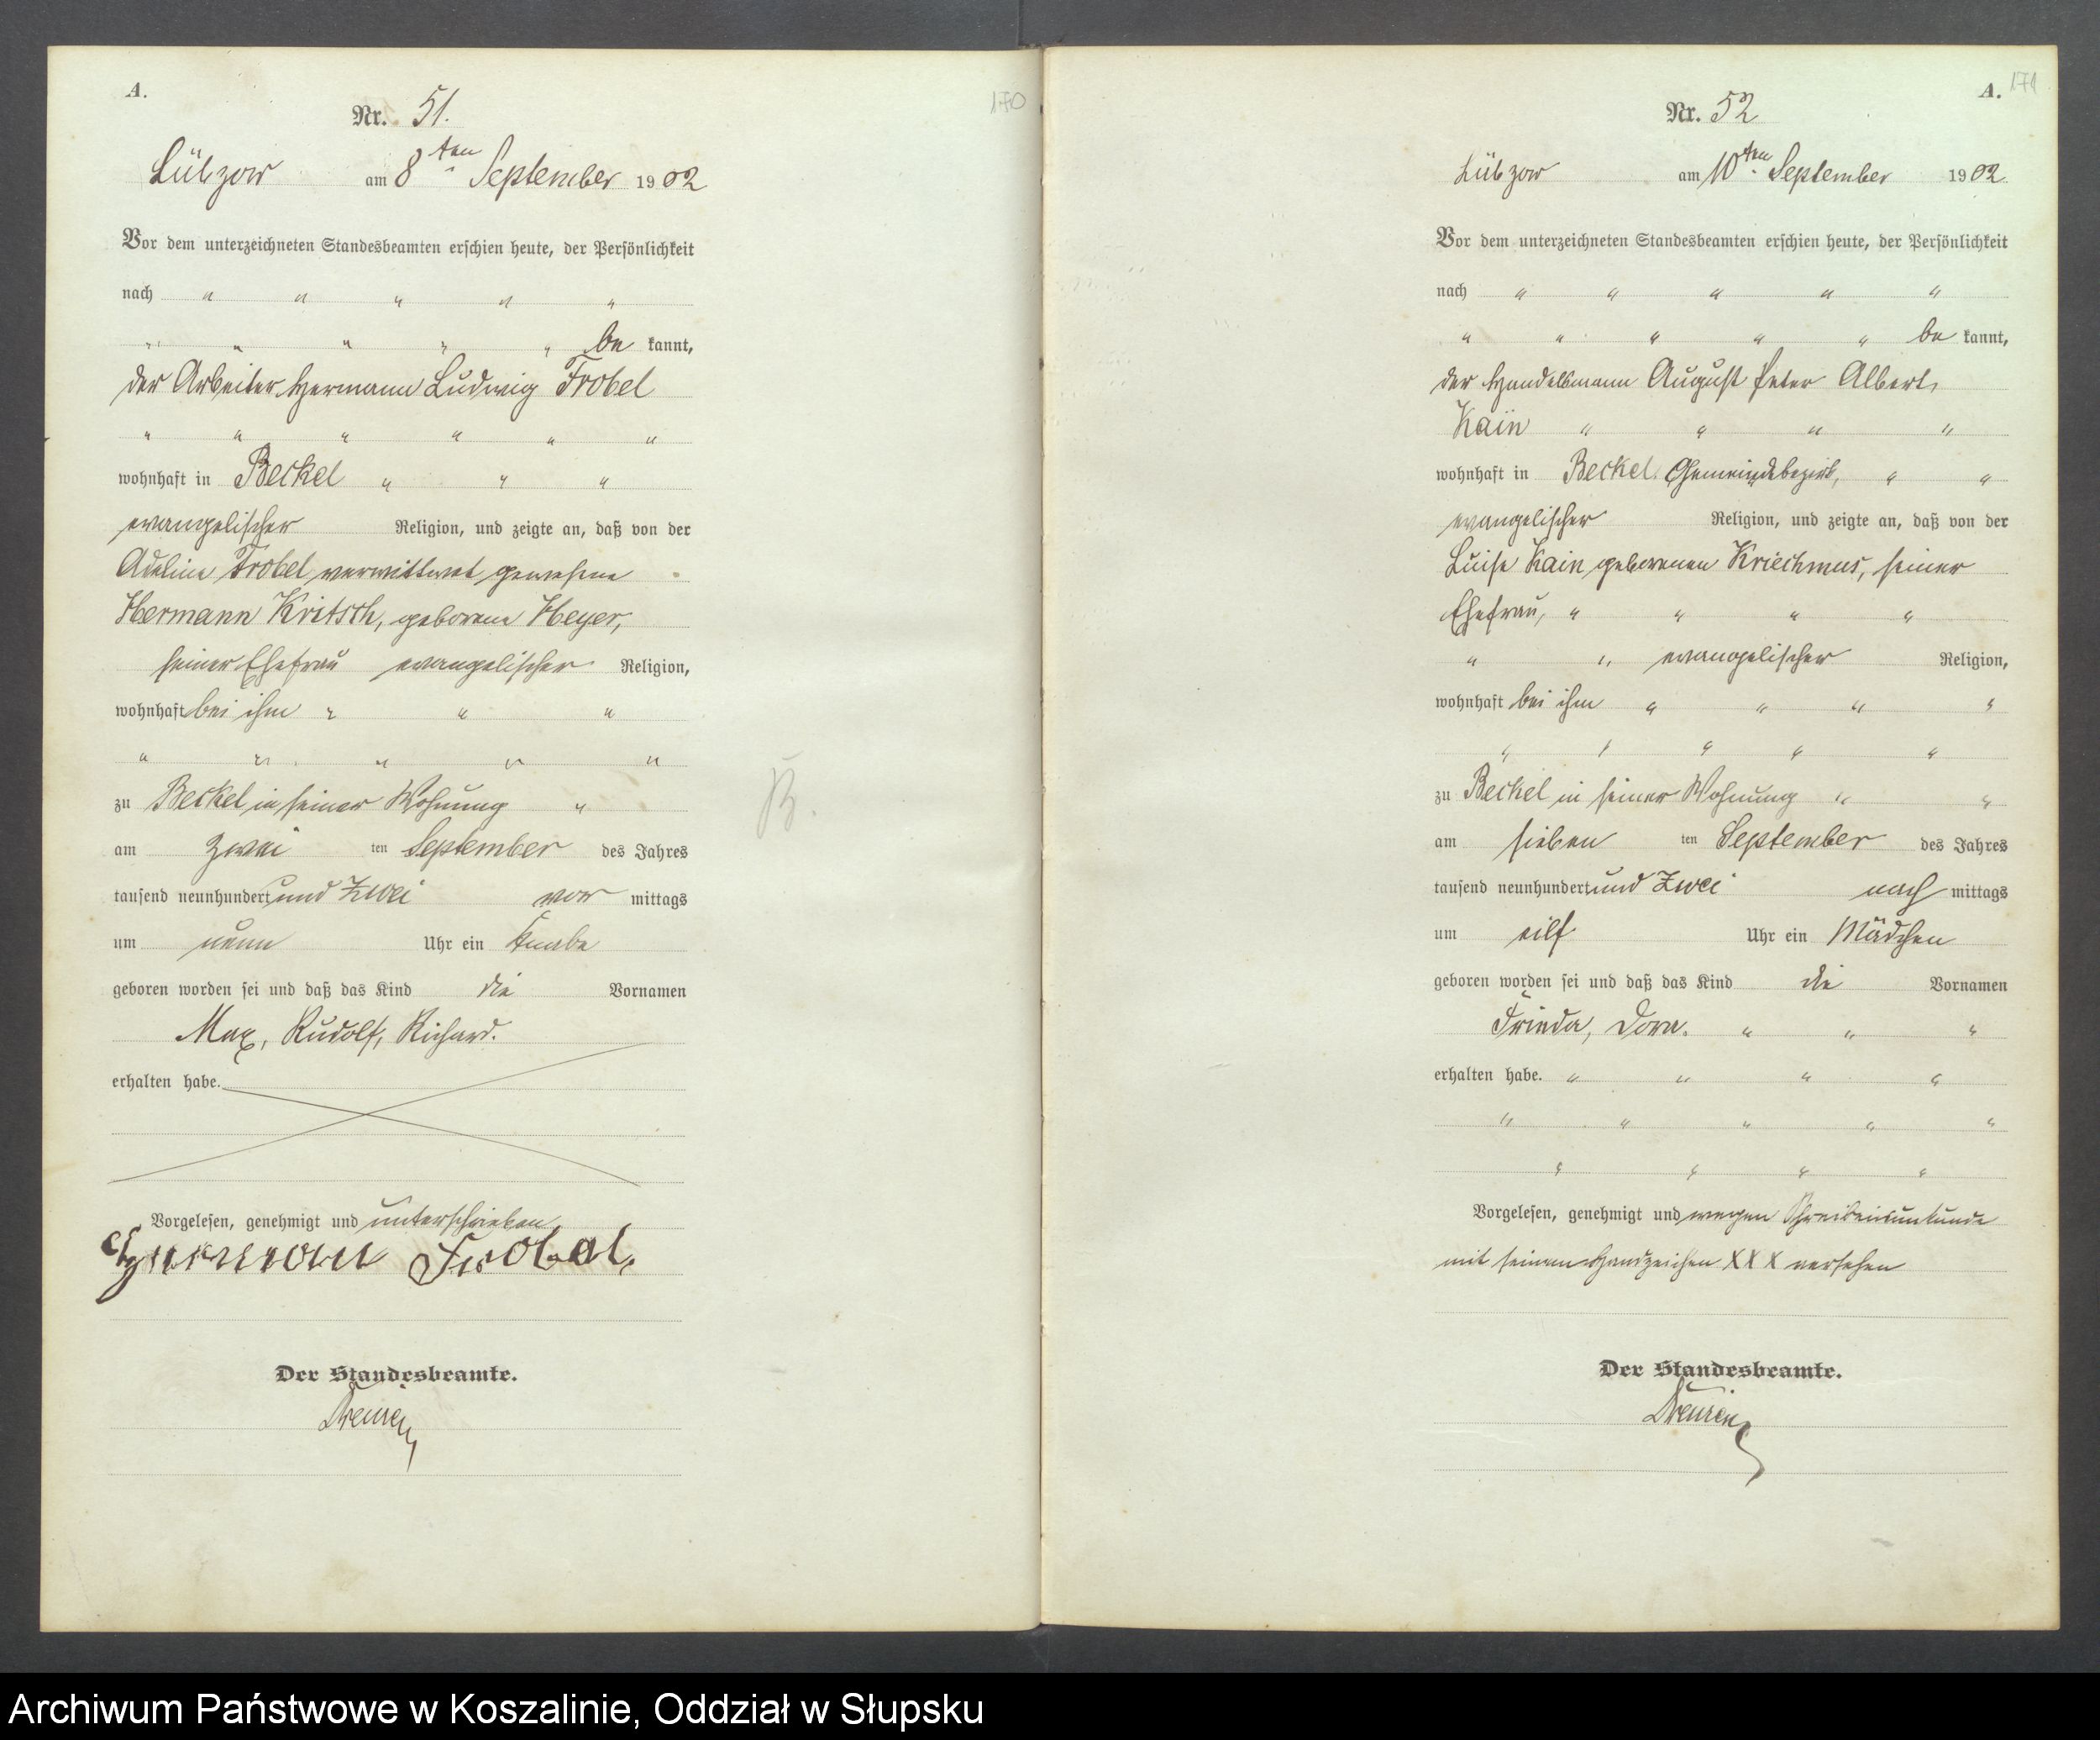 A.
170
Nr. 51.
Lübzow am 8ten September 1902
Vor dem unterzeichneten Standesbeamten erschien heute, der Persönlichkeit
nach " " " " "
" " " " " be kannt,
der Arbeiter Hermann Ludwig Trobel
" " " " " "
wohnhaft in Beckel " " "
evangelischer Religion, und zeigte an, daß von der
Adeline Trobel verwittwet gewesene
Hermann Kritsch, geborene Heyer,
seiner Ehefrau evangelischer Religion,
wohnhaft bei ihm " " "
" " " " "
zu Beckel in seiner Wohnung "
am zwei ten September des Jahres
tausend neunhundert und Zwei vor mittags
um neun Uhr ein Knabe
geboren worden sei und daß das Kind die Vornamen
Max, Rudolf, Richard.
erhalten habe.
Vorgelesen, genehmigt und unterschrieben
Hermann Trobel.
Der Standesbeamte.
B.
A.
171
Nr. 52
Lübzow am 10ten September 1902
Vor dem unterzeichneten Standesbeamten erschien heute, der Persönlichkeit
nach " " " " "
" " " " " be kannt,
der Handelsmann August Peter Albert
Kain " " " "
wohnhaft in Beckel Gemeindebezirk, " "
evangelischer Religion, und zeigte an, daß von der
Luise Kain geborenen Kriechmus, seiner
Ehefrau, " " " "
" " evangelischer Religion,
wohnhaft bei ihm " " " "
" " " " "
zu Beckel in seiner Wohnung " "
am sieben ten September des Jahres
tausend neunhundert und Zwei nach mittags
um eilf Uhr ein Mädchen
geboren worden sei und daß das Kind die Vornamen
Frieda, Dora. " " "
erhalten habe. " " " "
" " " " "
" " " "
Vorgelesen, genehmigt und wegen Schreibensunkunde
mit seinem Handzeichen XXX versehen
Der Standesbeamte.
Archiwum Państwowe w Koszalinie, Oddział w Słupsku